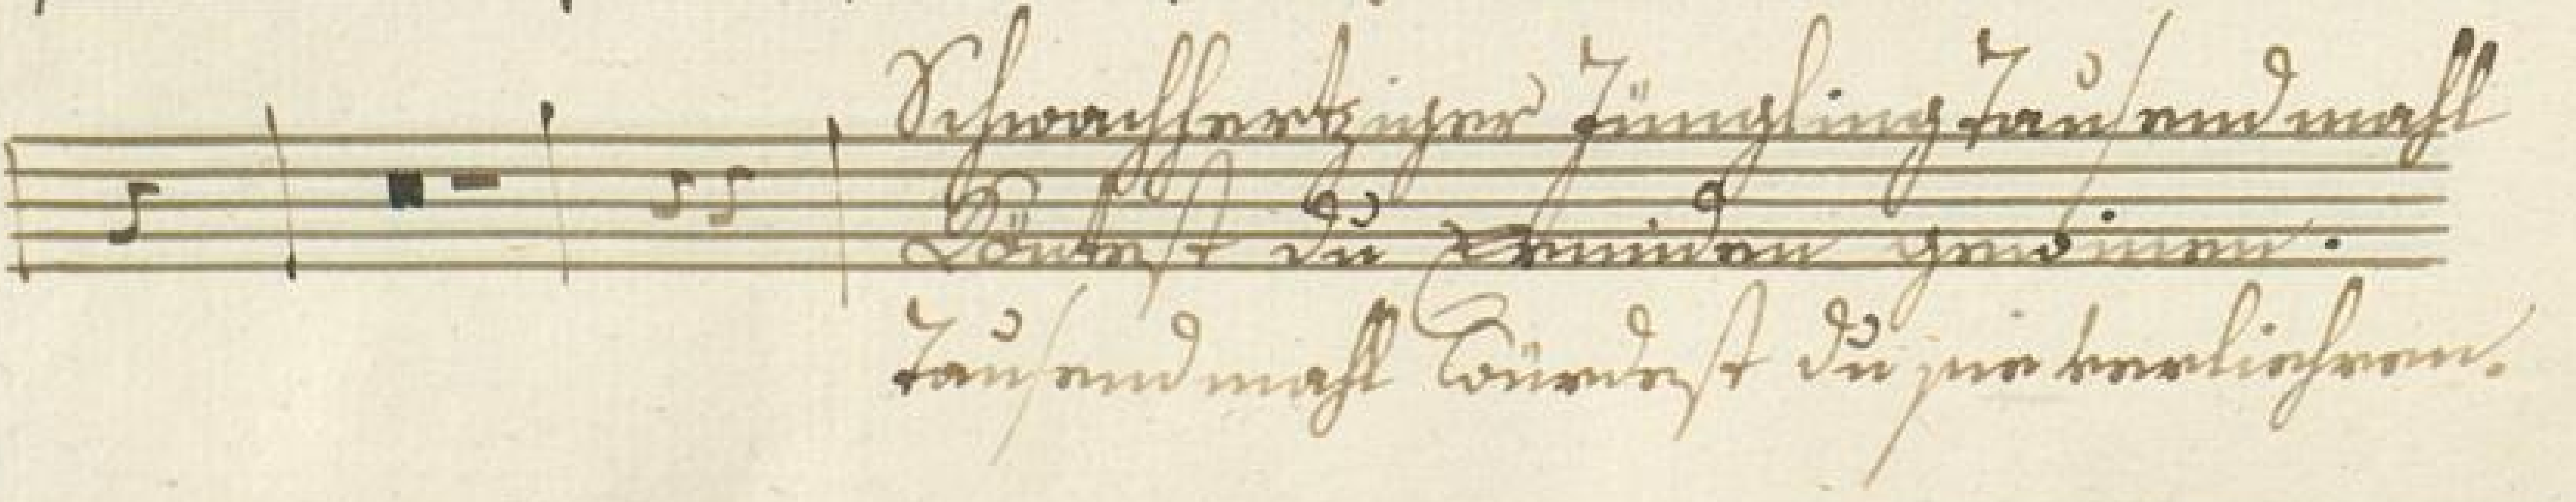 Schwachhertziger Jüngling Tausendmahl
Köntest du gewinnen.
Tausendmahl Würdest du sie verliehren.